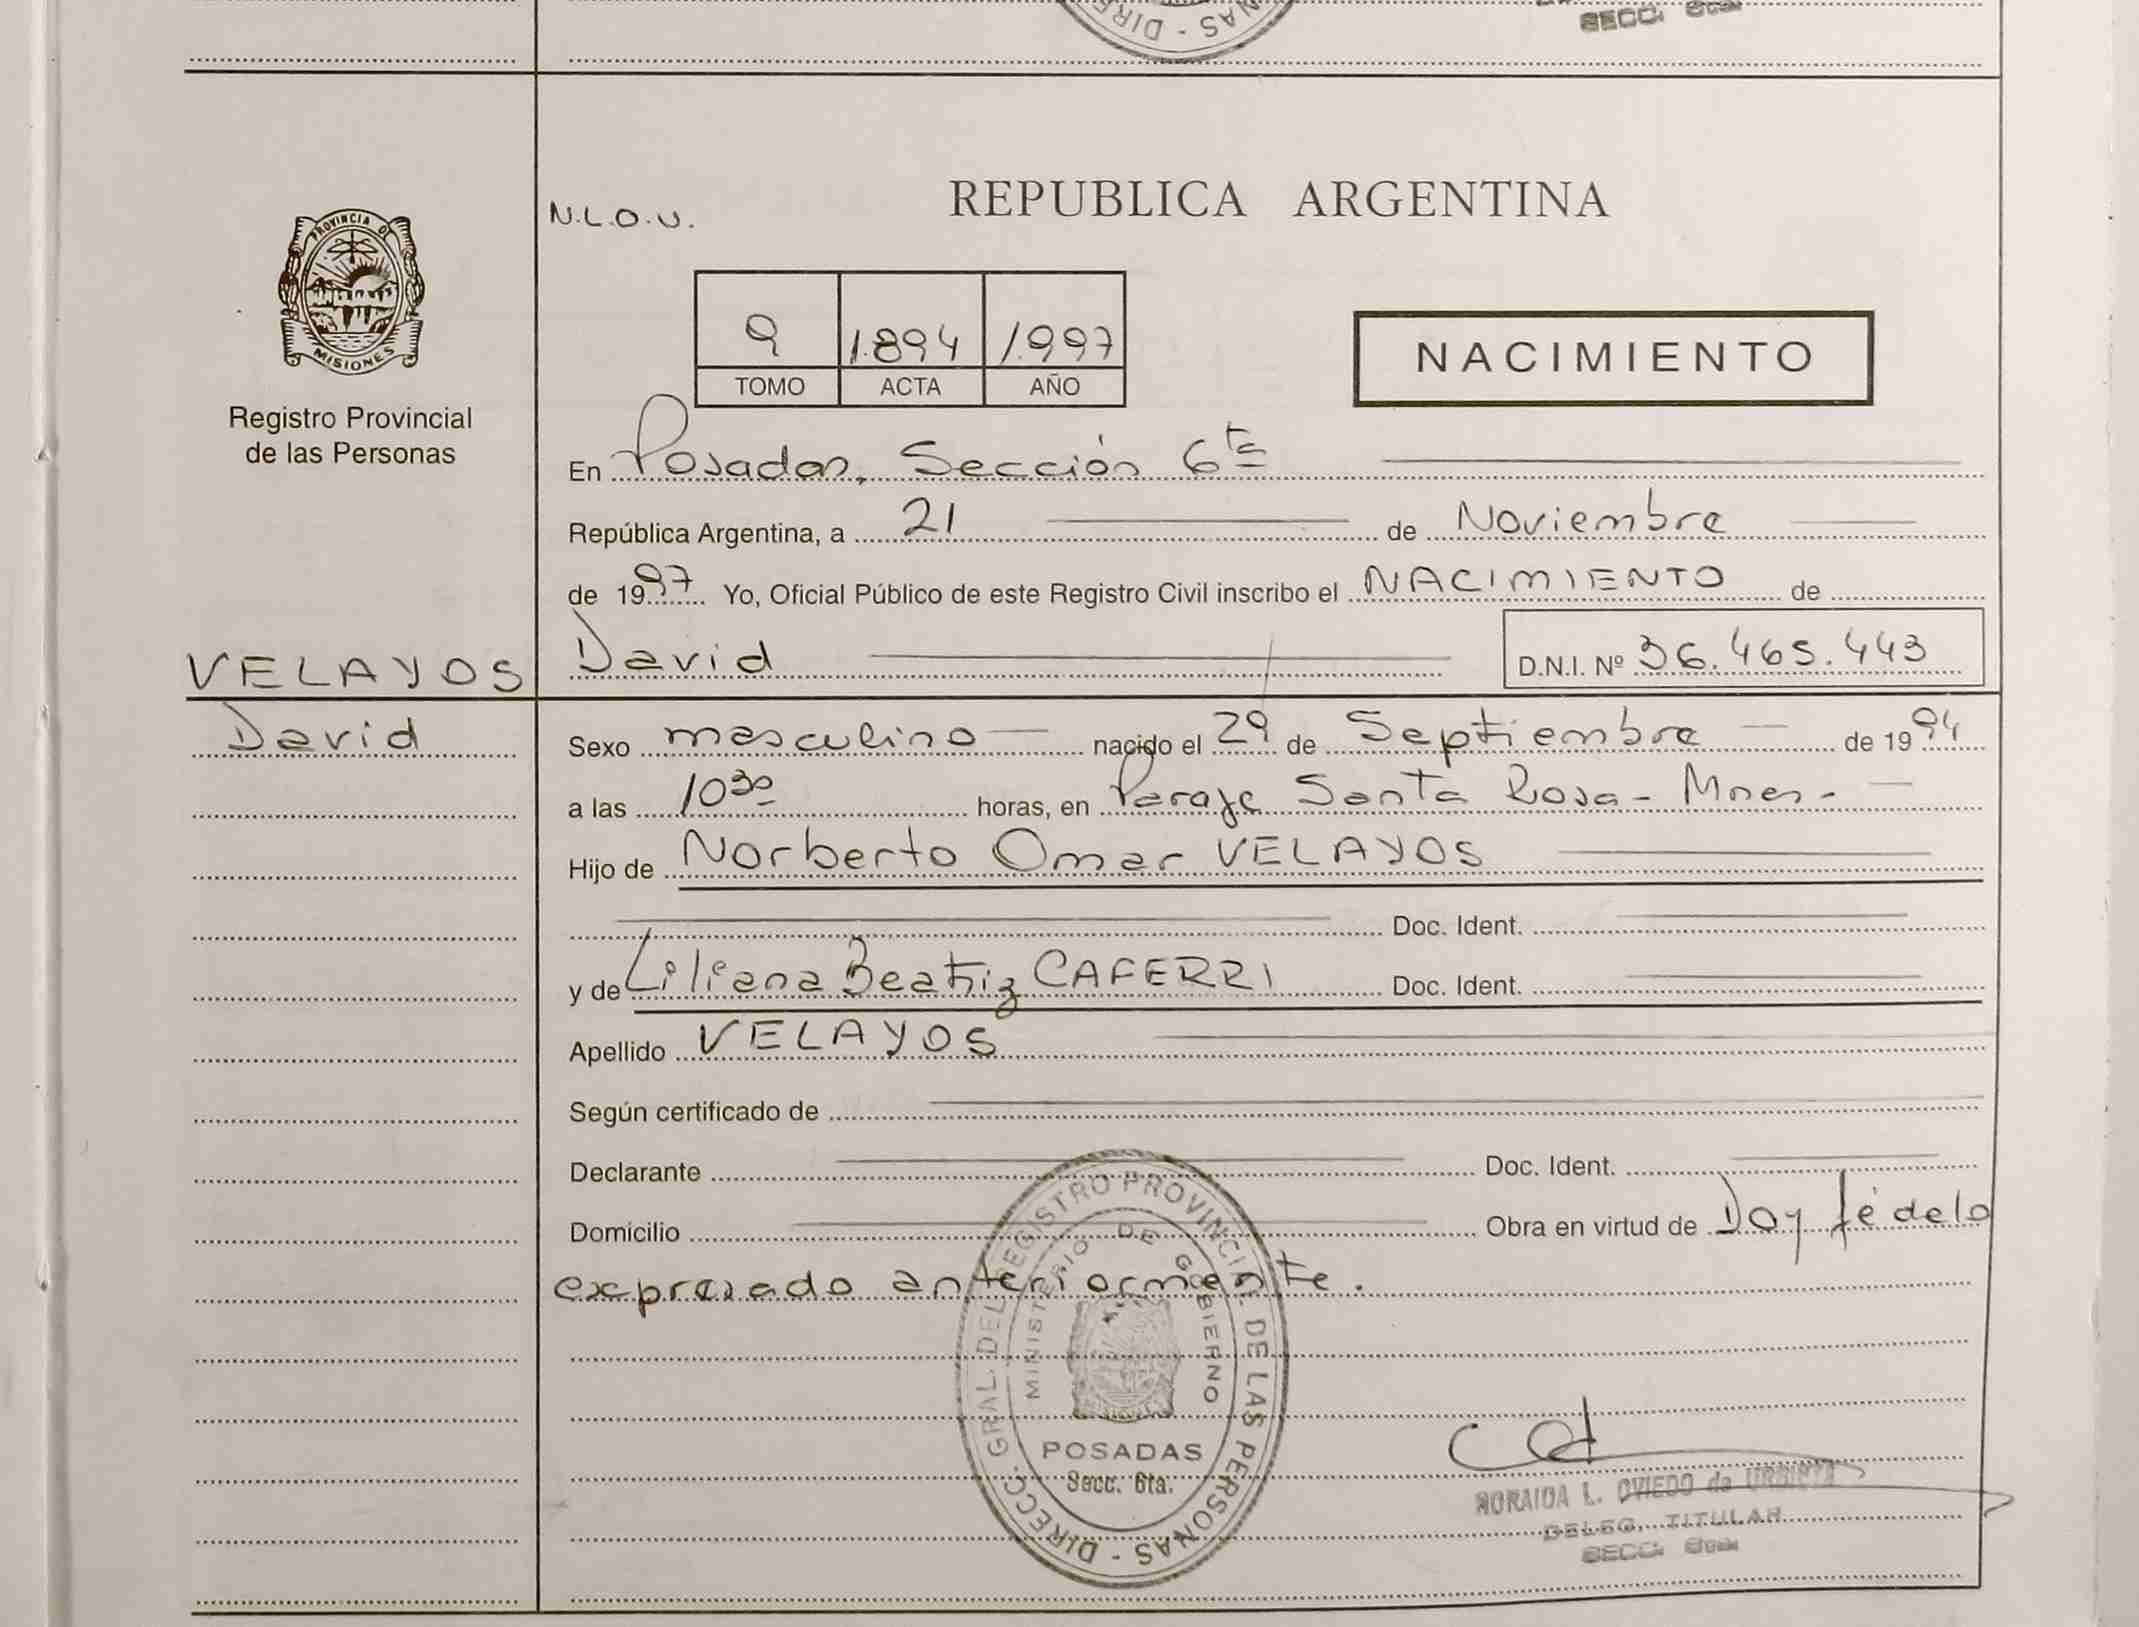 DIRE - SAN
SECC. 6ta.
PROVINCIA DE
MISIONES
Registro Provincial
de las Personas
N.L.O.U.
REPUBLICA ARGENTINA
9 1.894 1.997
TOMO ACTA AÑO
NACIMIENTO
En Posadas, Sección 6ta
República Argentina, a 21 de Noviembre
de 1997 Yo, Oficial Público de este Registro Civil inscribo el NACIMIENTO de
VELAYOS David D.N.I. Nº 36.465.443
David Sexo masculino nacido el 29 de Septiembre de 1994
a las 10 30 horas, en Paraje Santa Rosa - Mnes -
Hijo de Norberto Omar VELAYOS
Doc. Ident.
y de Liliana Beatriz CAFERRI Doc. Ident.
Apellido VELAYOS
Según certificado de
Declarante Doc. Ident.
Domicilio Obra en virtud de Doy fé de lo
expresado anteriormente.
DIRECC. GRAL. DEL REGISTRO PROVINCIAL DE LAS PERSONAS -
MINISTERIO DE GOBIERNO
POSADAS
Secc. 6ta.
L. OVIEDO de
DELEG. TITULAR
SECC. 6ta.